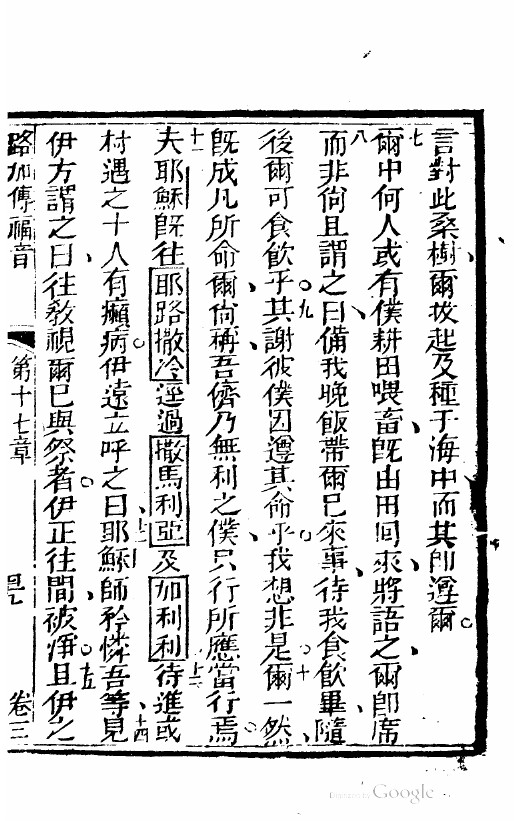 言對此桑樹爾拔起及種于海中而其卽遵爾。
七爾中何人或有僕耕田喂畜旣由田囘來將語之爾卽席
八而非尙且謂之曰備我晚飯帶爾巳來事待我食飮畢隨
後爾可食飮乎。九其謝彼僕因遵其命乎。我想非是。十爾一然
旣成凡所命爾尙稱吾儕乃無利之僕只行所應當行焉。
十一夫耶穌旣往耶路撒冷逕過撒馬利亞及加利利十二待進或
村遇之十人有癩病。伊遠立十三呼之曰耶穌師矜憐吾等十四見
伊方謂之曰往敎視爾巳與祭者。伊正往間被凈。十五且伊之
路加傳福音 第十七章 卷三
Digitized by Google